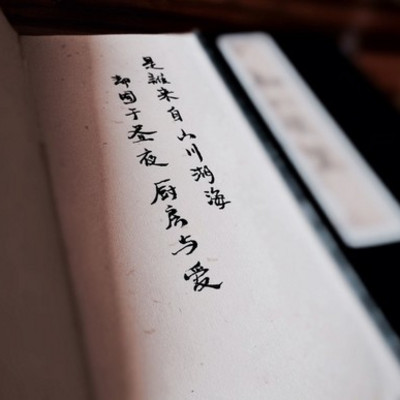 是谁来自山川湖海
却囿于昼夜厨房与爱